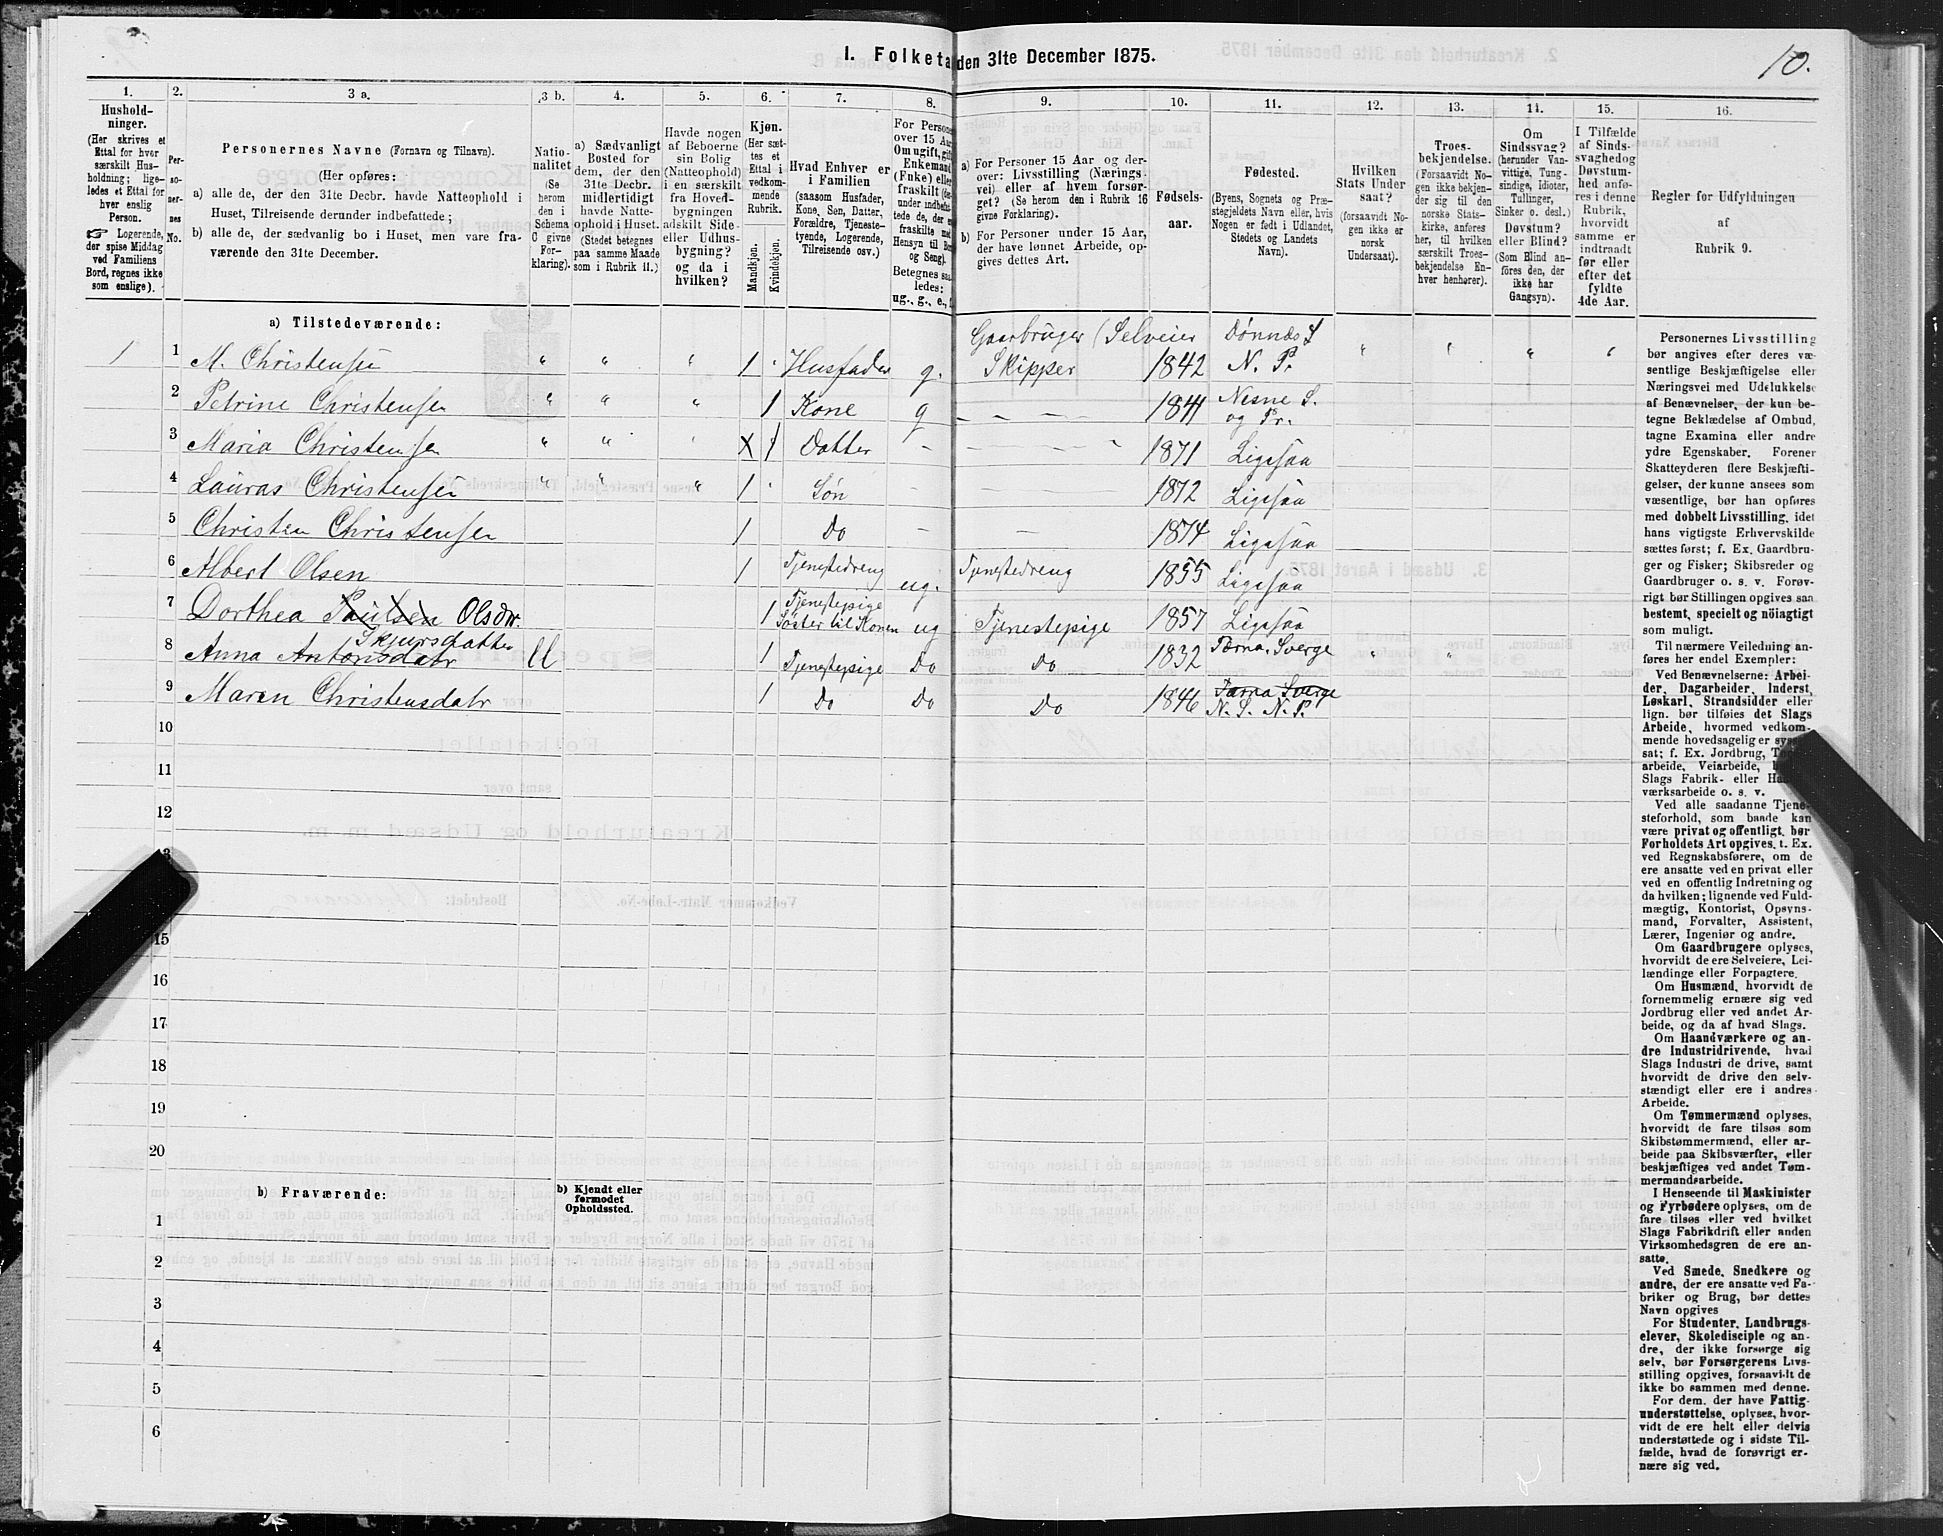 10.
I. Folketa den 31te December 1875.
1. 2. 3 a. 3 b. 4. 5. 6. 7. 8. 9. 10. 11. 12. 13. 14. 15. 16.
Hushold-
ninger.
(Her skrives et
Ettal for hver
særskilt Hus-
holdning; lige-
ledes et Ettal for
hver enslig
Person.
☞ Logerende,
der spise Middag
ved Familiens
Bord, regnes ikke
som enslige).
Per-
so-
ner-
nes
No.
Personernes Navne (Fornavn og Tilnavn).
(Her opføres:
a) alle de, der den 31te Decbr. havde Natteophold i
Huset, Tilreisende derunder indbefattede;
b) alle de, der sædvanlig bo i Huset, men vare fra-
værende den 31te December.
Natio-
nalitet
(Se
herom
den i
Schema
C givne
For-
klaring).
a) Sædvanligt
Bosted for
dem, der den
31te Decbr.
midlertidigt
havde Natte-
ophold i Huset.
(Stedet betegnes
paa samme Maade
som i Rubrik 11.)
Havde nogen
af Beboerne
sin Bolig
(Natteophold)
i en særskilt
fra Hoved-
bygningen
adskilt Side-
eller Udhus-
bygning?
og da i
hvilken?
Kjøn.
(Her sæt-
tes et
Ettal i
vedkom-
mende
Rubrik.
Mandkjøn.
Kvindekjøn.
Hvad Enhver er
i Familien
(saasom Husfader,
Kone, Søn, Datter,
Forældre, Tjeneste-
tyende, Logerende,
Tilreisende osv.)
For Persone
over 15 Aar
Om ugift, gif
Enkemand
(Enke) elle
fraskilt
under indbefat-
tede de, der e
fraskilte med
Hensyn til Bor
og Seng).
Betegnes saa
ledes:
ug., g., e.,
a) For Personer 15 Aar og der-
over: Livsstilling (Nærings-
vei) eller af hvem forsør-
get? (Se herom den i Rubrik 16
givne Forklaring).
b) For Personer under 15 Aar,
der have lønnet Arbeide, op-
gives dettes Art.
Fødsels-
aar.
Fødested.
(Byens, Sognets og Præ-
stegjeldets Navn eller, hvis
Nogen er født i Udlandet,
Stedets og Landets
Navn).
Hvilken
Stats Under
saat?
(forsaavidt No-
gen ikke er
norsk
Undersaat).
Troes-
bekjendelse.
(Forsaavidt No-
gen ikke bekjen-
der sig til den
norske Stats-
kirke, anføres
her, til hvilken
særskilt Troes-
bekjendelse En-
hver henhører).
Om
Sindssvag?
(herunder Van-
vittige, Tung-
sindige, Idioter,
Tullinger,
Sinker o. desl.)
Døvstum?
eller Blind?
(Som Blind an-
føres den, der
ikke har
Gangsyn).
I Tilfælde
af Sinds-
svaghed og
Døvstum-
hed anfø-
res i denne
Rubrik,
hvorvidt
samme er
indtraadt
før eller
efter det
fyldte
4de Aar.
Regler for Udfyldningen
af
Rubrik 9.
a) Tilstedeværende:
Gaarbruger (Selveier Dønnæs S
1 1 M. Christensen " " " 1 Husfader g. Skipper 1842 N. P. " " " "
2 Petrine Christensen " " " 1 Kone g — — — 1841 Nesne S.
og Pr.
3 Maria Christensen " " 1 Datter — — — — 1871 Ligesaa
4 Lauras Christensen " " " 1 Søn — — 1872 Ligesaa
5 Christen Christensen 1 Do — — 1874 Ligesaa
6 Albert Olsen 1 Tjenstedreng ug. Tjenstedreng 1855 Ligesaa
7 Dorthea Paulsen Olsdtr. 1 Tjenstepige
Söster til Konen ug Tjenstepige 1857 Ligesaa
8 Anna Antonsdatr 1 Tjenstepige Do Do 1832 Tærna. Sverge " "
9 Maren Christensdatr 1 Do Do Do 1846 Tærna Sverge
N. S. N. P.
10
11
12
15
16
17
18
19
20
b) Fraværende:
b) Kjendt eller
formodet
Opholdssted.
1
2
3
4
5
6
Personernes Livsstilling
bør angives efter deres væ-
sentlige Beskjæftigelse eller
Næringsvei med Udelukkelse
af Benævnelser, der kun be-
tegne Beklædelse af Ombud,
tagne Examina eller andre
ydre Egenskaber. Forener
Skatteyderen flere Beskjæfti-
gelser, der kunne ansees som
væsentlige, bør han opføres
med dobbelt Livsstilling, idet
hans vigtigste Erhvervskilde
sættes først; f. Ex. Gaardbru-
ger og Fisker; Skibsreder og
Gaardbruger o. s. v. Forøv-
rigt bør Stillingen opgives saa
bestemt, specielt og nöiagtigt
som muligt.
Til nærmere Veiledning an-
føres her endel Exempler:
Ved Benævnelserne: Arbei-
der, Dagarbeider, Inderst,
Løskarl, Strandsidder eller
lign. bør tilføies det Slags
Arbeide, hvormed vedkom-
mende hovedsagelig er
sat; f. Ex. Jordbrug,
arbeide, Veiarbeide,
Slags Fabrik- eller
værksarbeide o. s. v.
Ved alle saadanne Tjene-
steforhold, som baade kan
være privat og offentligt, bør
Forholdets Art opgives, t. Ex.
ved Regnskabsførere, om de
ere ansatte ved en privat eller
ved en offentlig Indretning og
da hvilken; lignende ved Fuld-
mægtig, Kontorist, Opsyns-
mand, Forvalter, Assistent,
Lærer, Ingeniør og andre.
Om Gaardbrugere oplyses,
hvorvidt de ere Selveiere, Lei-
lændinge eller Forpagtere.
Om Husmænd, hvorvidt de
fornemmelig ernære sig ved
Jordbrug eller ved andet Ar-
beide, og da af hvad Slags.
Om Haandværkere og an-
dre Industridrivende, hvad
Slags Industri de drive, samt
hvorvidt de drive den selv-
stændigt eller ere i andres
Arbeide.
Om Tømmermænd oplyses,
hvorvidt de fare tilsøs som
Skibstømmermænd, eller ar-
beide paa Skibsværfter, eller
beskjæftiges ved andet Tøm-
mermandsarbeide.
I Henseende til Maskinister
og Fyrbødere oplyses, om de
fare tilsøs eller ved hvilket
Slags Fabrikdrift eller anden
Virksomhedsgren de ere an-
satte.
Ved Smede, Snedkere og
andre, der ere ansatte ved Fa-
briker og Brug, bør dettes
Navn opgives
For Studenter, Landbrugs-
elever, Skoledisciple og an-
dre, der ikke forsørge sig
selv, bør Forsørgerens Livs-
stilling opgives, forsaavidt de
ikke bo sammen med denne.
For dem, der have Fattig-
understøttelse, oplyses, hvor-
vidt de ere helt eller delvis
understøttede og i sidste Til-
fælde, hvad de forøvrigt er-
nære sig ved.